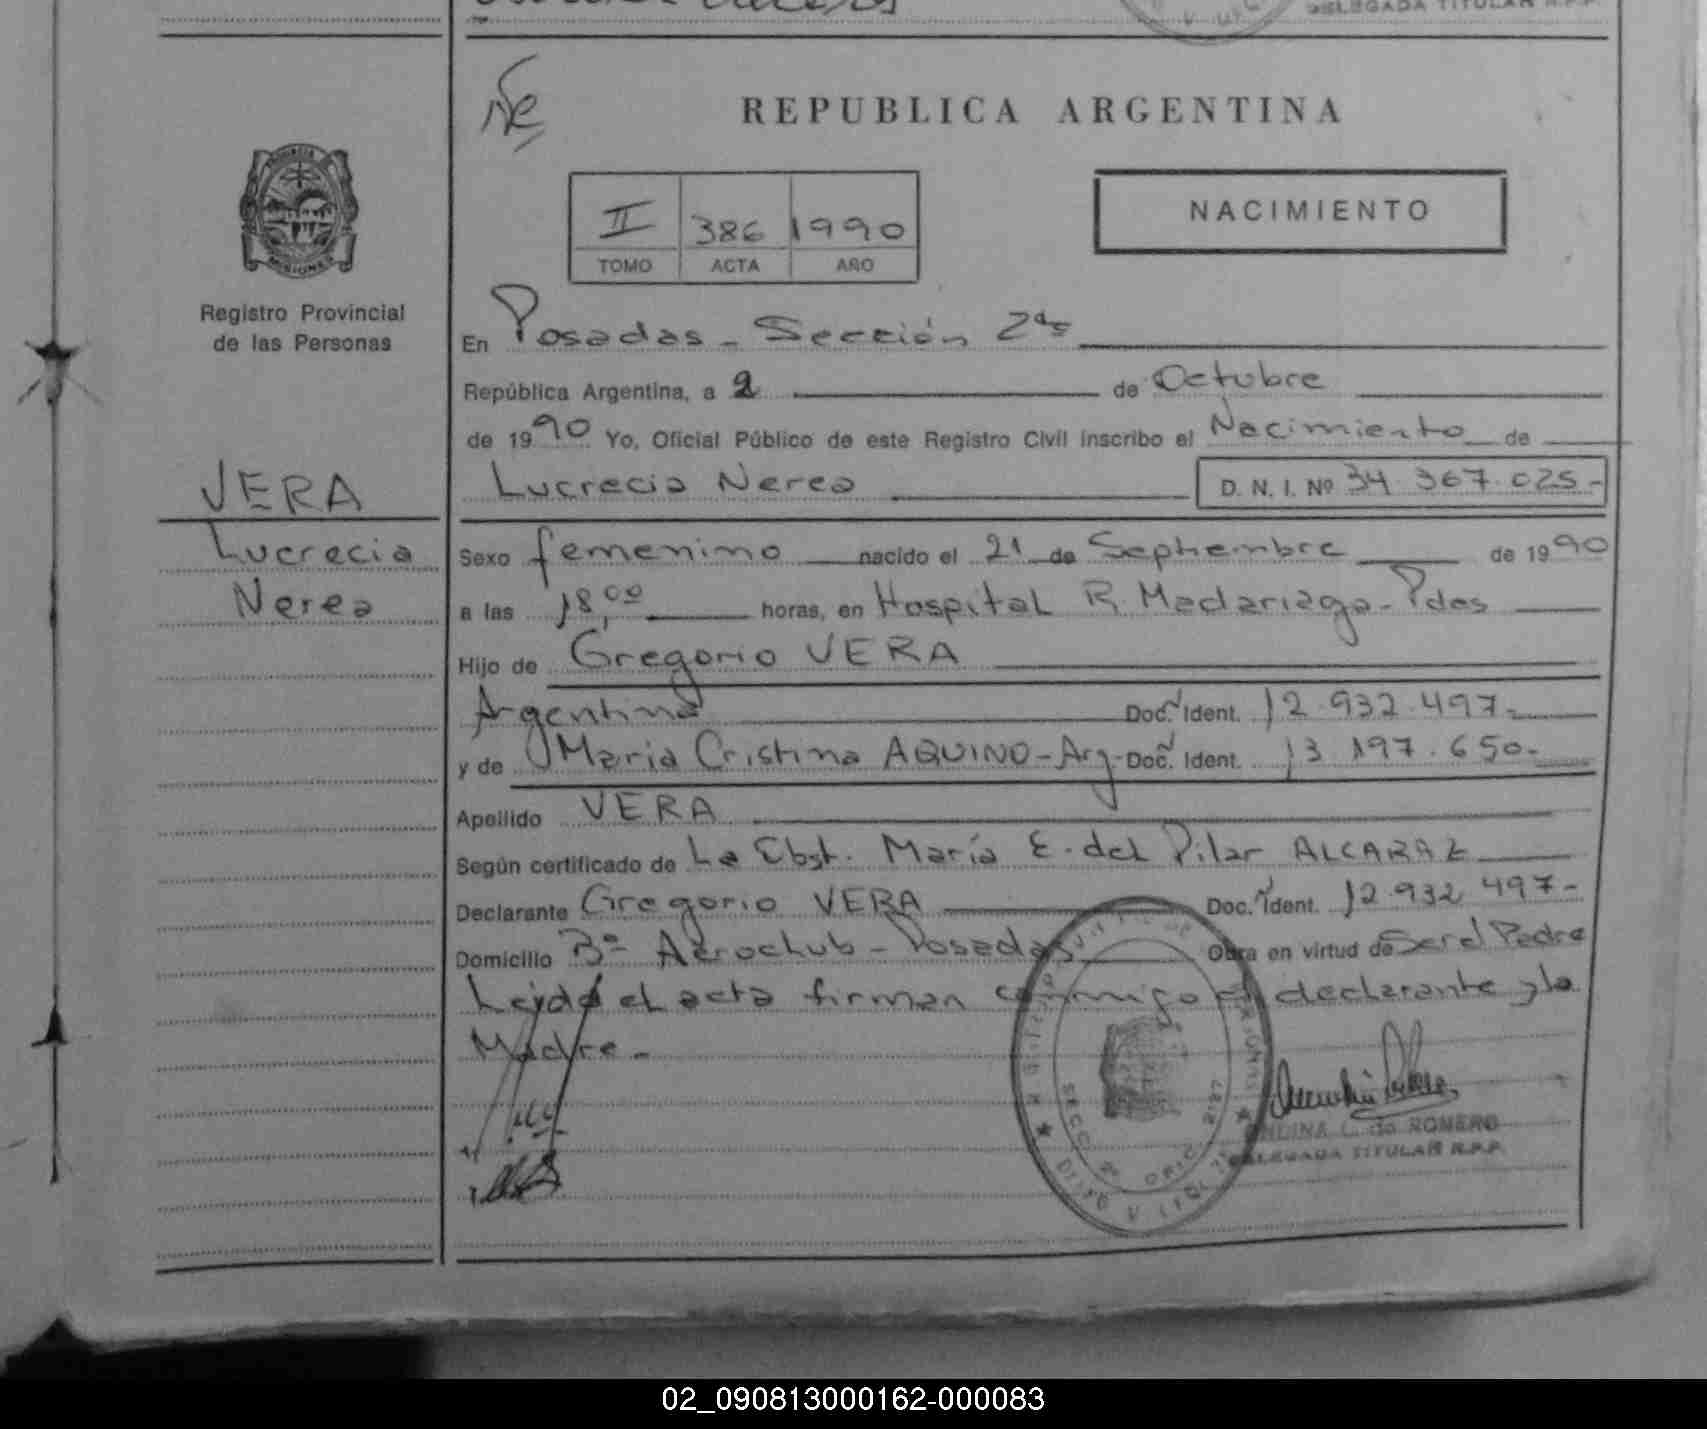 DELEGADA TITULAR R.P.P.
REPUBLICA ARGENTINA
PROVINCIA
MISIONES
II 386 1990
TOMO ACTA AÑO
NACIMIENTO
Registro Provincial
de las Personas
En Posadas - Sección 2da
República Argentina, a 2 de Octubre
de 1990 Yo, Oficial Público de este Registro Civil inscribo el Nacimiento de
Lucrecia Nerea D. N. I. Nº 34 367.025-
VERA
Lucrecia
Nerea
Sexo femenino nacido el 21 de Septiembre de 1990
a las 18,00 horas, en Hospital R. Madariaga - Pdas
Hijo de Gregorio VERA
Argentina Doc. Ident. 12.932.497-
y de María Cristina AQUINO - Arg - Doc. Ident. 13 197.650-
Apellido VERA
Según certificado de La Obst. María E. del Pilar ALCARAZ
Declarante Gregorio VERA Doc. Ident. 12.932 497-
Domicilio Bº Aeroclub - Posadas Obra en virtud de Ser el Padre
Leida el acta firman conmigo el declarante y la
Madre-
L. de ROMERO
DELEGADA TITULAR R.P.P.
02_090813000162-000083